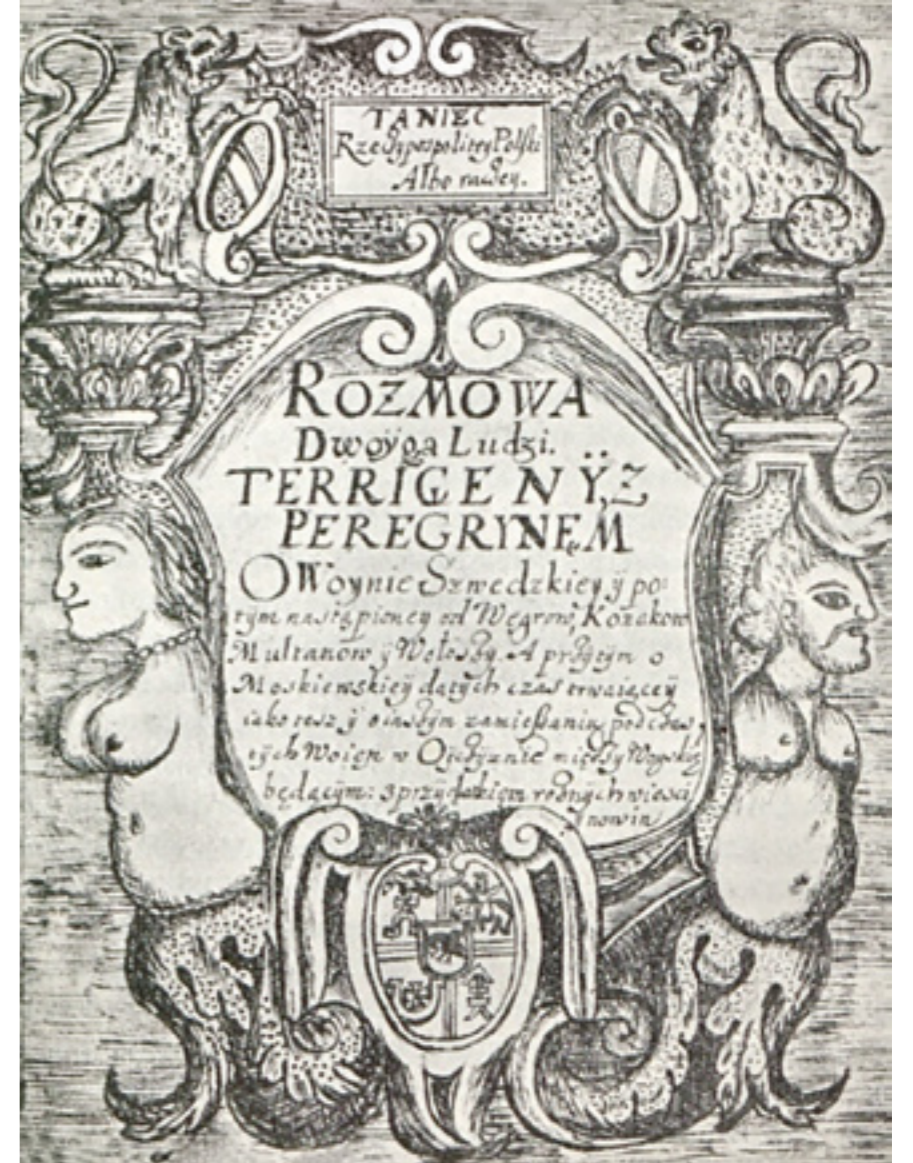 TANIEC
Rzeczypospolitey Polski
Albo raczey.
ROZMOWA
Dwoÿga Ludzi.
TERRIGENŸ, Z
PEREGRYNĘM
O Woynie Szwedzkiey ÿ po:
tym nastąpioney od Węgrow, Kozakow
Multanow ÿ Wołoszy. A przytym o
Moskiewskieÿ datych czas trwaiąceÿ
iako tesz ÿ o inszÿm zamieszaniu podczas
tÿch Woien w Ojczÿznie między Woyskiẽ
będącÿm: z przydatkiem roznÿch wiesci
ÿ nowin